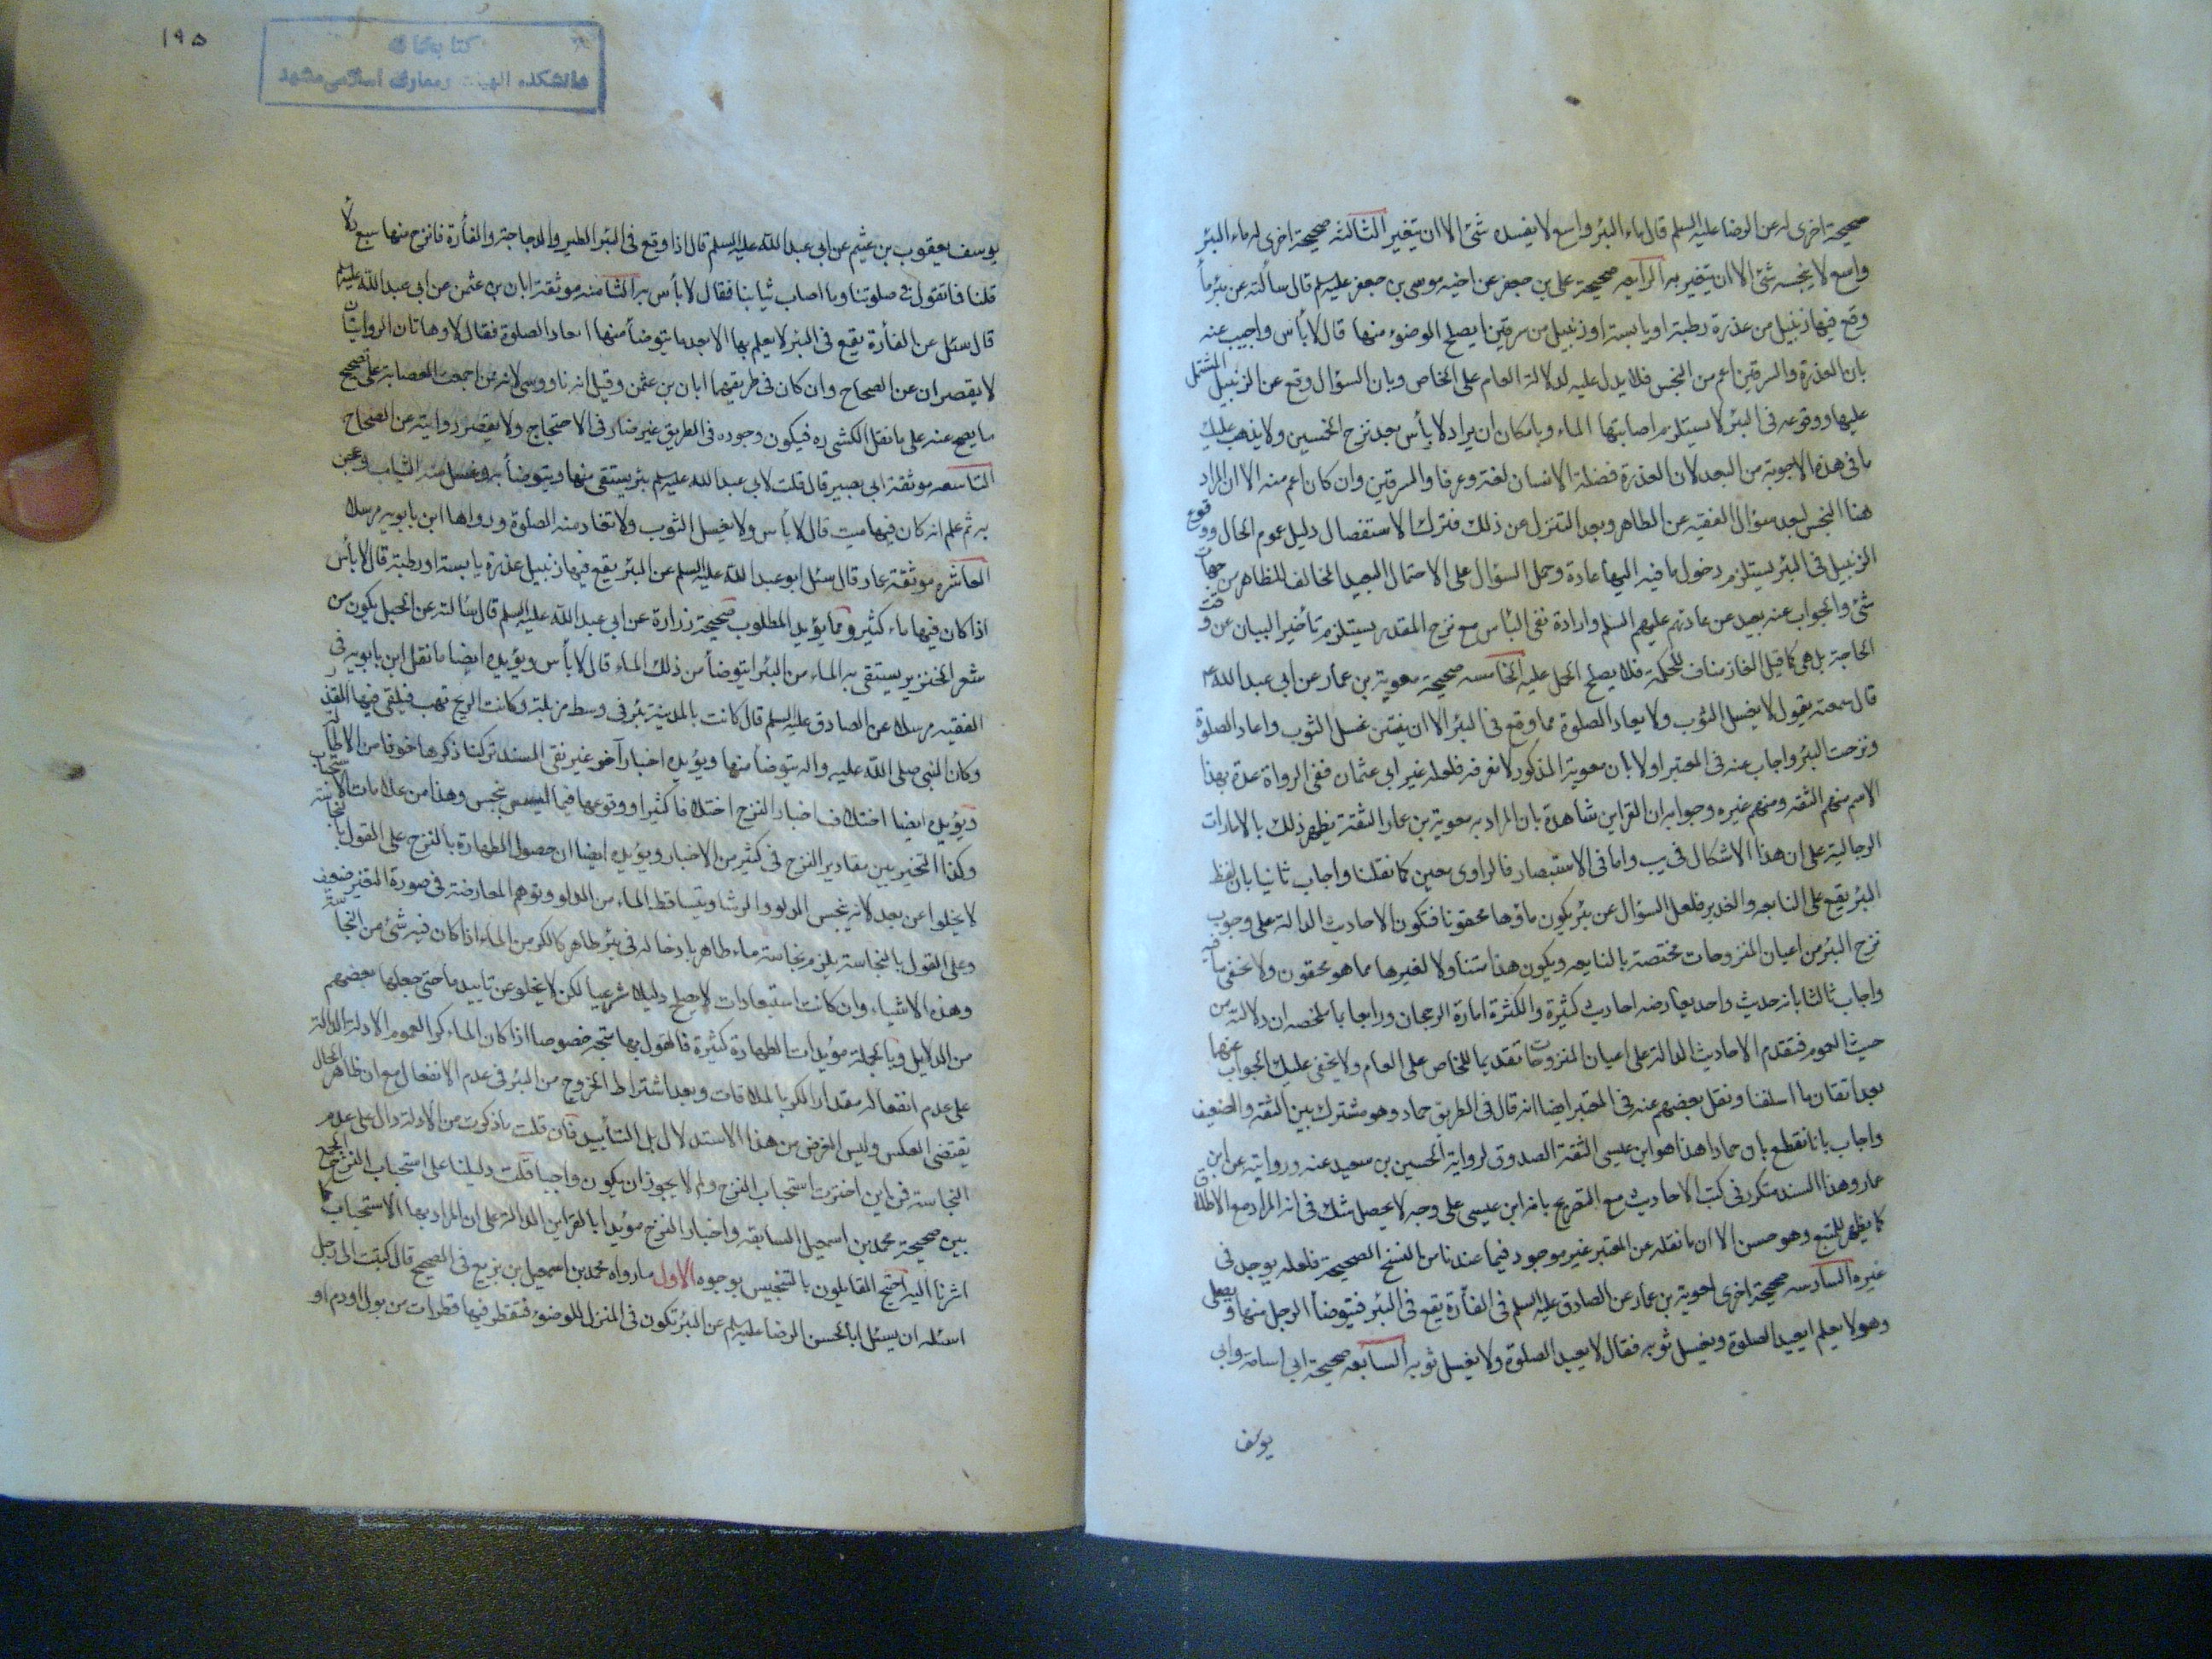 صحيحة اخرى له عن الرضا عليه السلم قال ماء البئر واسع لا يفسده شئ الا ان يتغير الثالثه صحيحة اخرى له ماء البئر
واسع لا ينجسه شئ الا ان يتغير به الرابعه صحيحة على بن جعفر عن اخيه موسى بن جعفر عليه السلم قال سألته عن بئر ماء
وقع فيها زنبيل من عذرة رطبة او يابسة او زنبيل من سرقين ايصلح الوضوء منها قال لا بأس واجيب عنه
بان العذرة والسرقين اعم من النجس فلا يدل عليه لدلالة العام على الخاص وبان السؤال وقع عن الزنبيل المشتمل
عليها ووقوعه فى البئر لا يستلزم اصابتها الماء وبامكان ان يراد لا بأس بعد نزح الخمسين ولا يذهب عليك
ما فى هذه الاجوبة من البعد لان العذرة فضلة الانسان لغة وعرفا والسرقين وان كان اعم منه الا ان المراد
هنا النجس لبعد سؤال الفقيه عن الطاهر وبعد التنزل عن ذلك فترك الاستفصال دليل عموم الحال ووقوع
الزنبيل فى البئر يستلزم دخول ما فيه اليها عادة وحمل السؤال على الاحتمال البعيد المخالف للظاهر من جهات
شئ والجواب عنه بعيد عن عادتهم عليهم السلم وارادة نفى البأس مع نزح المقدر يستلزم تأخير البيان عن وقت
الحاجة بل هى كما قيل الغاز مناف للحكمة فلا يصلح الحمل عليه الخامسه صحيحة معوية بن عمار عن ابى عبد الله ع
قال سمعته يقول لا يغسل الثوب ولا يعاد الصلوة مما وقع فى البئر الا ان ينتن غسل الثوب واعاد الصلوة
ونزحت البئر واجاب عنه فى المعتبر اولا بان معوية المذكور لا نعرفه فلعله غير ابى عثمان ففى الرواة عدة بهذا
الاسم منهم الثقه ومنهم غيره وجوابه ان القراين شاهدة بان المراد به معوية بن عمار الثقة يظهر ذلك بالامارات
الرجالية على ان هذا الاشكال فى يب واما فى الاستبصار فالراوى معين كما نقلنا واجاب ثانيا بان لفظ
البئر يقع على النابعه والغدير فلعل السؤال عن بئر يكون ماؤها محقونا فتكون الاحاديث الدالة على وجوب
نزح البئر من اعيان المنزوحات مختصة بالنابعه ويكون هذا متناولا لغيرها مما هو محقون ولا يخفى ما فيه
واجاب ثالثا بانه حديث واحد يعارضه احاديث كثيرة والكثرة امارة الرجحان ورابعا بما ملخصه ان دلالته من
حيث العموم فتقدم الاحاديث الدالة على اعيان المنزوحات تقديما للخاص على العام ولا يخفى عليك الجواب عنها
بعد اتقان ما اسلفنا ونقل بعضهم عنه فى المعتبر ايضا انه قال فى الطريق حماد وهو مشترك بين الثقة والضعيف
واجاب بانا نقطع بان حمادا هذا هو ابن عيسى الثقة الصدوق لرواية الحسين بن سعيد عنه وروايته عن ابن
عمار وهذا السند متكرر فى كتب الاحاديث مع التصريح بانه ابن عيسى على وجه لا يحصل شك فى انه المراد مع الاطلاق
كما يظهر للمتتبع وهو حسن الا ان ما نقله عن المعتبر غير موجود فيما عندنا من النسخ الصحيحة فلعله يوجد فى
غيره السادسه صحيحة اخرى لمعوية بن عمار عن الصادق عليه السلم فى الفأرة يقع فى البئر فيتوضأ الرجل منها ويصلى
وهو لا يعلم ايعيد الصلوة ويغسل ثوبه فقال لا يعيد الصلوة ولا يغسل ثوبه السابعه صحيحة ابى اسامة وابى
يوسف
١٩٥
كتابخانه
دانشكده الهيات ومعارف اسلامى مشهد
يوسف يعقوب بن عثيم عن ابى عبد الله عليه السلم قال اذا وقع فى البئر الطير والدجاجة والفأرة فانزح منها سبع دلاء
قلنا فما تقول فى صلوتنا وما اصاب ثيابنا فقال لا بأس به الثامنه موثقة ابان بن عثمن عن ابى عبد الله عليه السلم
قال سئل عن الفأرة يقع فى البئر لا يعلم بها الا بعد ما يتوضأ منها ايعاد الصلوة فقال لا وهاتان الروايتان
لا يقصران عن الصحاح وان كان فى طريقهما ابان بن عثمن وقيل انه ناووسى لانه ممن اجمعت العصابة على تصحيح
ما يصح عنه على ما نقل الكشى ره فيكون وجوده فى الطريق غير ضار فى الاحتجاج ولا يقصر روايته عن الصحاح
التاسعه موثقة ابى بصير قال قلت لابى عبد الله عليه السلم بئر يستقى منها ويتوضأ به وغسل منه الثياب وعجن
به ثم علم انه كان فيها ميت قال لا بأس ولا يغسل الثوب ولا تعاد منه الصلوة ورواها ابن بابويه مرسلا
العاشره موثقة عمار قال سئل ابو عبد الله عليه السلم عن البئر يقع فيها زنبيل عذرة يابسة او رطبة قال لا بأس
اذا كان فيها ماء كثير ومما يؤيد المطلوب صحيحة زرارة عن ابى عبد الله عليه السلم قال سألته عن الحبل يكون من
شعر الخنزير يستقى به الماء من البئر ايتوضأ من ذلك الماء قال لا بأس ويؤيده ايضا ما نقل ابن بابويه فى
الفقيه مرسلا عن الصادق عليه السلم قال كانت بالمدينة بئر فى وسط مزبلة وكانت الريح تهب فيلقى فيها القذر
وكان النبى صلى الله عليه واله يتوضأ منها ويؤيده اخبار آخر غير نقى السند تركنا ذكرها خوفا من الاطالة
ويؤيده ايضا اختلاف اخبار النزح اختلافا كثيرا ووقوعها فيما ليس بنجس وهذا من علامات الاستحباب
وكذا التخيير بين مقادير النزح فى كثير من الاخبار ويؤيده ايضا ان حصول الطهارة بالنزح على القول بالنجاسة
لا يخلوا عن بعد لانه ينجس الدلو والرشا ويتساقط الماء من الدلو وتوهم المعارضة فى صورة التغير ضعيف
وعلى القول بالنجاسة يلزم نجاسة ماء طاهر بادخاله فى بئر طاهر كالكر من الماء اذا كان فيه شئ من النجاسة
وهذه الاشياء وان كانت استبعادات لا يصلح دليلا شرعيا لكن لا يخلو عن تاييد ما حتى جعلها بعضهم
من الدلايل وبالجملة مؤيدات الطهارة كثيرة فالقول بها متجه خصوصا اذا كان الماء كرا لعموم الادلة الدالة
على عدم انفعال مقدار الكر بالملاقات وبعد اشتراط الخروج من البئر فى عدم الانفعال مع ان ظاهر الحال
يقتضى العكس وليس الغرض من هذا الاستدلال بل التأييد فان قلت ما ذكرت من الادلة دال على عدم
النجاسة فمن اين اخترت استحباب النزح ولم لا يجوز ان يكون واجبا قلت دليلنا على استحباب النزح الجمع
بين صحيحة محمد بن اسمعيل السابقه واخبار النزح مؤيدا بالقراين الدالة على ان المراد بها الاستحباب كما
اشرنا اليه احتج القايلون بالتنجيس بوجوه الاول ما رواه محمد بن اسمعيل بن بزيع فى الصحيح قال كتبت الى رجل
اسئله ان يسئل ابا الحسن الرضا عليه السلم عن البئر تكون فى المنزل للوضوء فتقطر فيها قطرات من بول او دم او